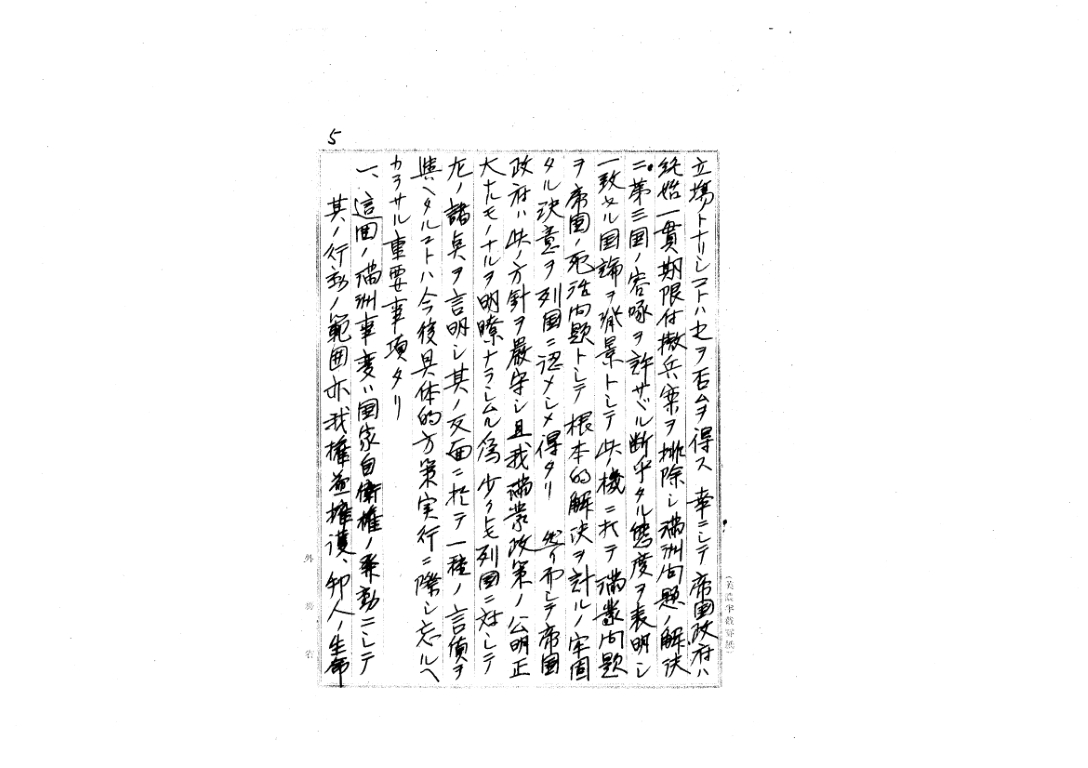 5
立場トナリシコトハ之ヲ否ムヲ得ス 幸ニシテ帝国政府ハ
終始一貫期限付撤兵案ヲ排除シ満洲問題ノ解決
ニ第三国ノ容喙ヲ許サザル断乎タル態度ヲ表明シ
一致セル国論ヲ背景トシテ此ノ機ニ於テ満蒙問題
ヲ帝国ノ死活問題トシテ根本的解決ヲ計ルノ牢固
タル決意ヲ列国ニ認メシメ得タリ 然リ而シテ帝国
政府ハ此ノ方針ヲ厳守シ且我満蒙政策ノ公明正
大ナルモノナルヲ明瞭ナラシムル為少クモ列国ニ対シテ
左ノ諸点ヲ言明シ其ノ反面ニ於テ一種ノ言債ヲ
与ヘタルコトハ今後具体的方策実行ニ際シ忘ルヘ
カラサル重要事項タリ
一、這回ノ満洲事変ハ国家自衛権ノ発動ニシテ
其ノ行動ノ範囲亦我権益擁護、邦人ノ生命
外務省